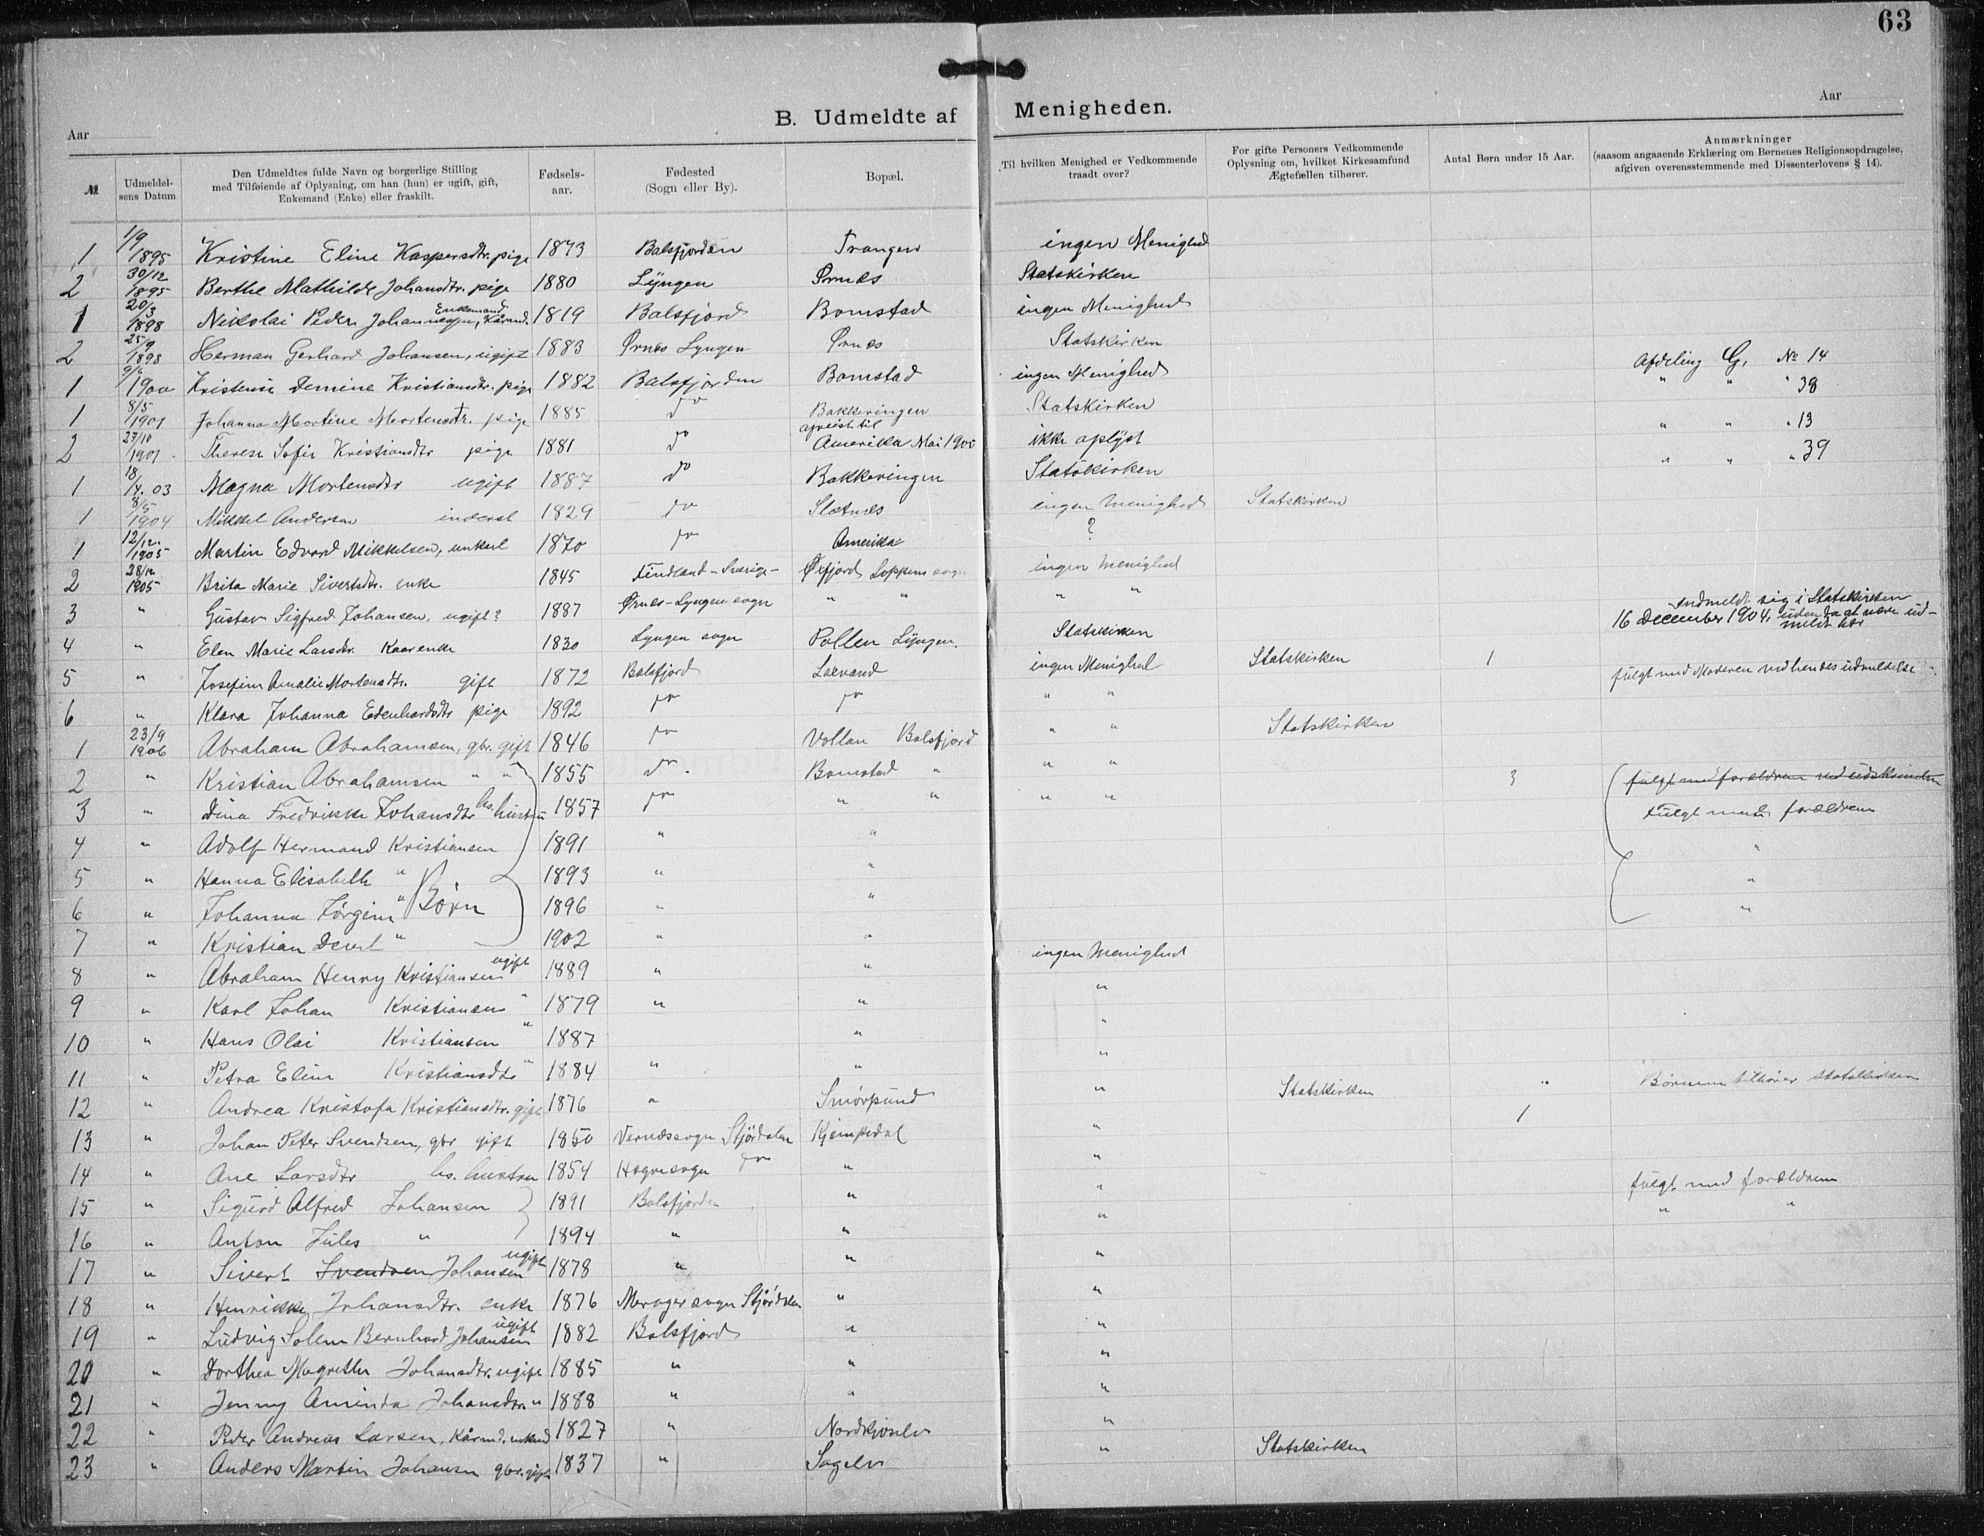 63
B. Udmeldte af Menigheden.
Aar
Aar
№
Udmeldelsens Datum
Den Udmeldtes fulde Navn og borgerlige Stilling med Tilføiende af Oplysning, om han (hun) er ugift, gift, Enkemand (Enke) eller fraskilt.
Fødselsaar.
Fødested (Sogn eller By).
Bopæl.
Til hvilken Menighed er Vedkommende traadt over?
For gifte Personers Vedkommende Oplysning om, hvilket Kirkesamfund Ægtefællen tilhører.
Antal Børn under 15 Aar.
Anmærkninger (saasom angaaende Erklæring om Børnenes Religionsopdragelse, afgiven overensstemmende med Dissenterlovens § 14).
1 1/9 1895 Kristine Eline Kaspersdtr. pige 1873 Balsfjorden Trangen ingen Menighed
2 30/12 1895 Berthe Mathilde Johansdtr. pige 1880 Lyngen Ørnæs Statskirken
1 20/3 1898 Nikolai Peder Johannesen, Enkemand, Kårmd. 1819 Balsfjord Bomstad ingen Menighed
2 25/9 1898 Herman Gerhard Johansen, ugift 1883 Ørnes Lyngen Ørnæs Statskirken
1 1900 Kristense Demine Kristiansdtr. pige 1882 Balsfjorden Bomstad ingen Menighed Afdeling G, № 14
" " " 38
1 8/5 1901 Johanna Martine Mortensdtr. pige 1885 do Bakkeringen Statskirken
" " " 13
2 27/10 1901 Therese Sofie Kristiansdtr pige 1881 do afreist til Amerika Mai 1900 ikke oplyst
" " " 39
1 18/4. 03 Magna Mortensdtr ugift 1887 do Bakkeringen Statskirken
1 8/5 1904 Mikkel Andersen inderst 1829 do Slætnes ingen Menighed Statskirken
1 12/12. 1905 Martin Edvard Mikkelsen, unkarl 1870 do Amerika ?
2 28/12 1905 Brita Marie Sivertsdtr. enke 1845 Findland - Sverige Øxfjord Loppens sogn ingen Menighed
3 " Gustav Sigfred Johansen, ugift? 1887 Ørnes - Lyngen sogn " " " "
4 " Elen Marie Larsdtr. Kaarenke 1830 Lyngen sogn Pollen Lyngen. Statskirken indmeldt sig i Statskirken 16 December 1904, uden da at være udmeldt her
5 " Josefine Amalie Mortensdtr. gift 1872 Balsfjord Laxvand ingen Menighed Statskirken 1
6 " Klara Johanna Edenhardsdtr pige 1892 do do " " fulgt med Moderen ved hendes udmeldelse
1 23/9 1906 Abraham Abrahamsen, gbr. gift 1846 do Vollan Balsfjord " " Statskirken
2 " Kristian Abrahamsen " " 1855 do. Bomstad " " " 3 fulgt med forældrene ved udskrivelsen
3 " Dina Fredrikke Johansdtr hs. hustru 1857 do " " " " Fulgt med forældrene
4 " Adolf Hermand Kristiansen 1891 " " "
5 " Hanna Elisabeth " 1893 " " "
6 " Johanna Jørgine " Børn 1896 " " "
7 " Kristian " 1902 " "
8 " Abraham Henry Kristiansen ugift 1889 " " ingen Menighed
9 " Karl Johan Kristiansen " 1879 " " "
10 " Hans Olai Kristiansen " 1887 " "
11 " Petra Eline Kristiansdtr " 1884 " " "
12 " Andrea Kristofa Kristiansdtr. gift 1876 " Smörpund " Statskirken " Börnene tilhører Statskirken
13 " Johan Peter Svendsen, gbr gift 1850 Vernæssogn Stjördalen Kjempedal " 1
14 " Ane Larsdtr hs. hustru 1854 Hegresogn do " "
15 " Sigurd Alfred Johansen 1891 Balsfjorden " " fulgt med forældrene
16 " Anton Jules " 1894 " " " " "
17 " Sivert Svendsen Johansen ugift 1878 " " "
18 " Henrikke Johansdtr. enke 1876 Merager sogn Stjördalen " "
19 " Ludvig Solem Bernhard Johansen ugift 1882 Balsfjord " "
20 " Dorthea Magrethe Johansdtr. ugift 1885 " " "
21 " Jenny Aminda Johansdtr " 1888 " " "
22 " Peder Andreas Larsen, Kårmd. enkemd 1827 " Nordkjoselv "
23 " Anders Martin Johansen gbr. gift 1837 " Sagelv " Statskirken